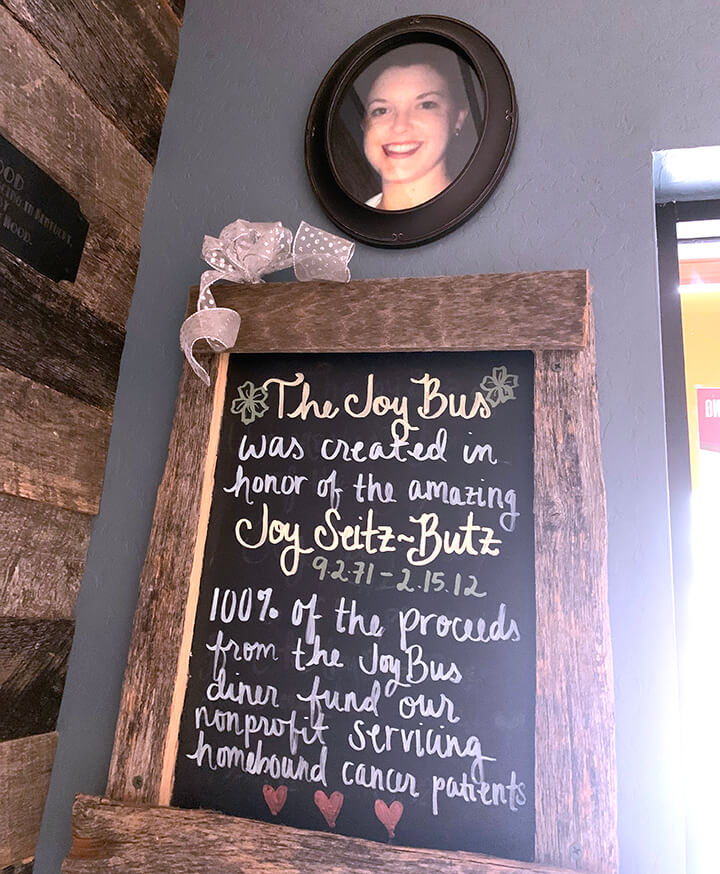 The Joy Bus
was created in
honor of the amazing
Joy Seitz~Butz
9.2.71 - 2.15.12
100% of the proceeds
from the JoyBus
diner fund our
nonprofit servicing
homebound cancer patients
OOD
IN KENTUCKY,
HOOD.